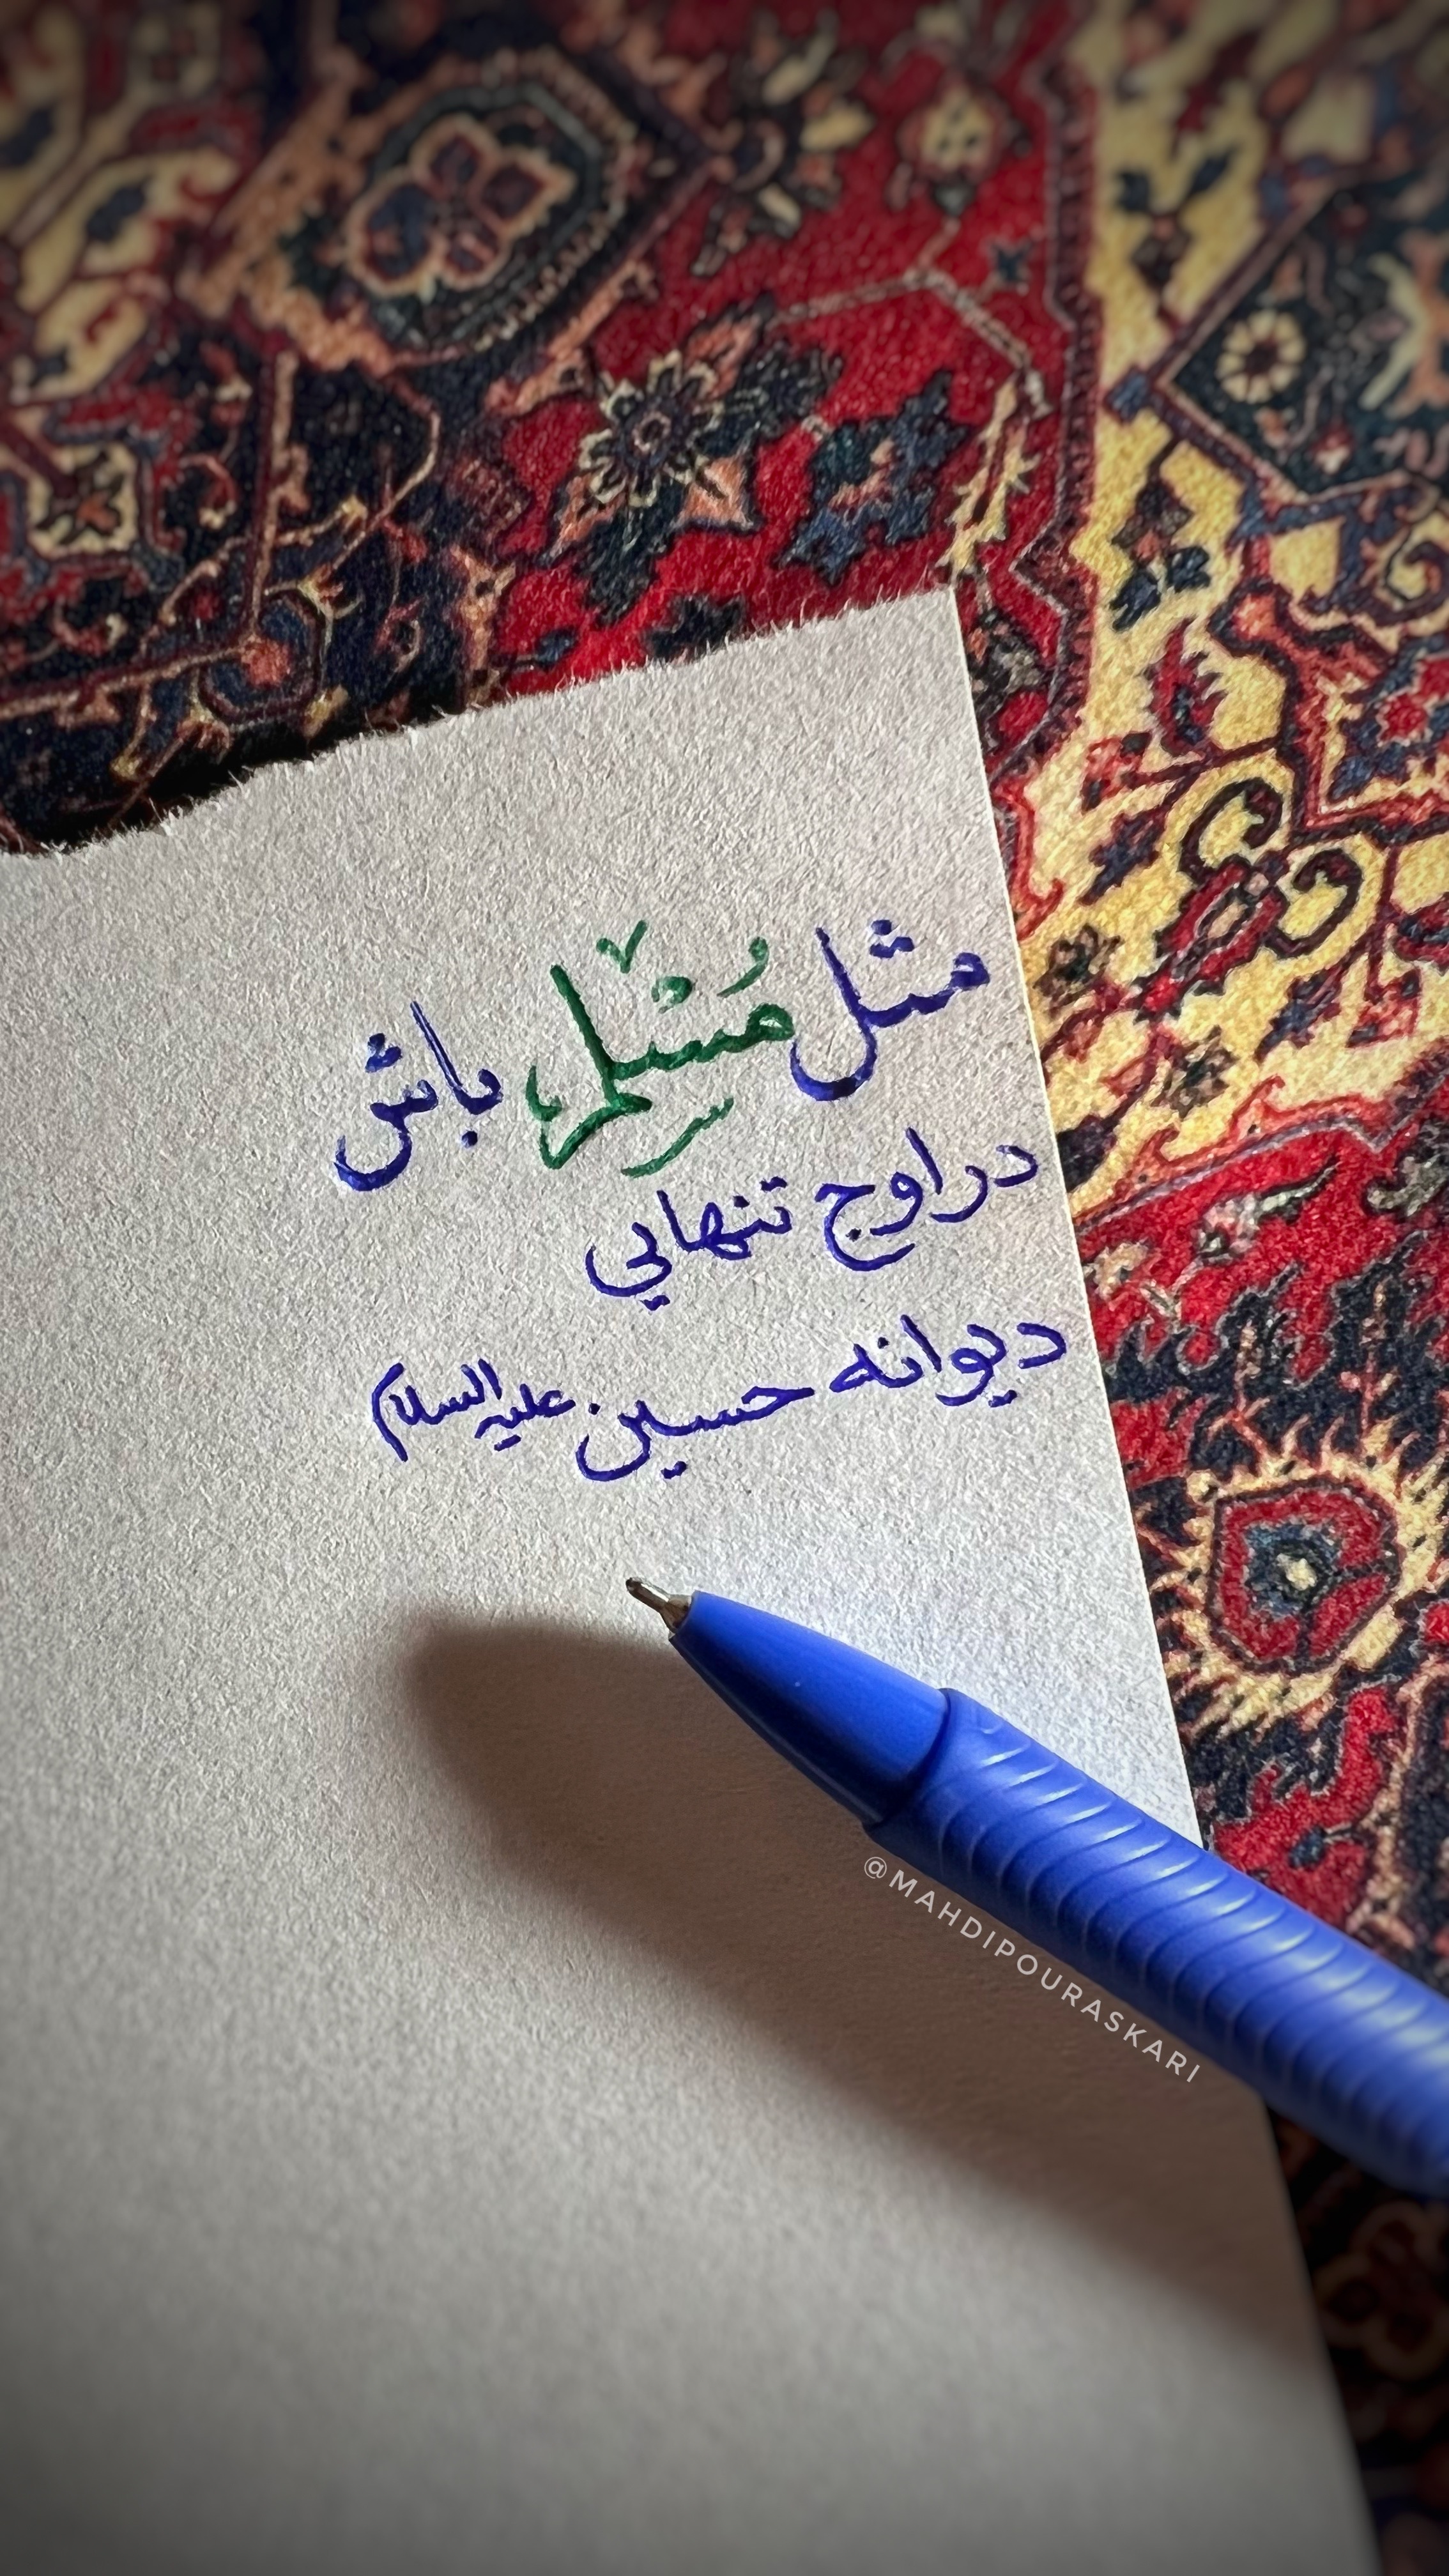 مثل مُسْلِم باش
در اوج تنهایی
دیوانه حسین علیه السلام
@MAHDIPOURASKARI